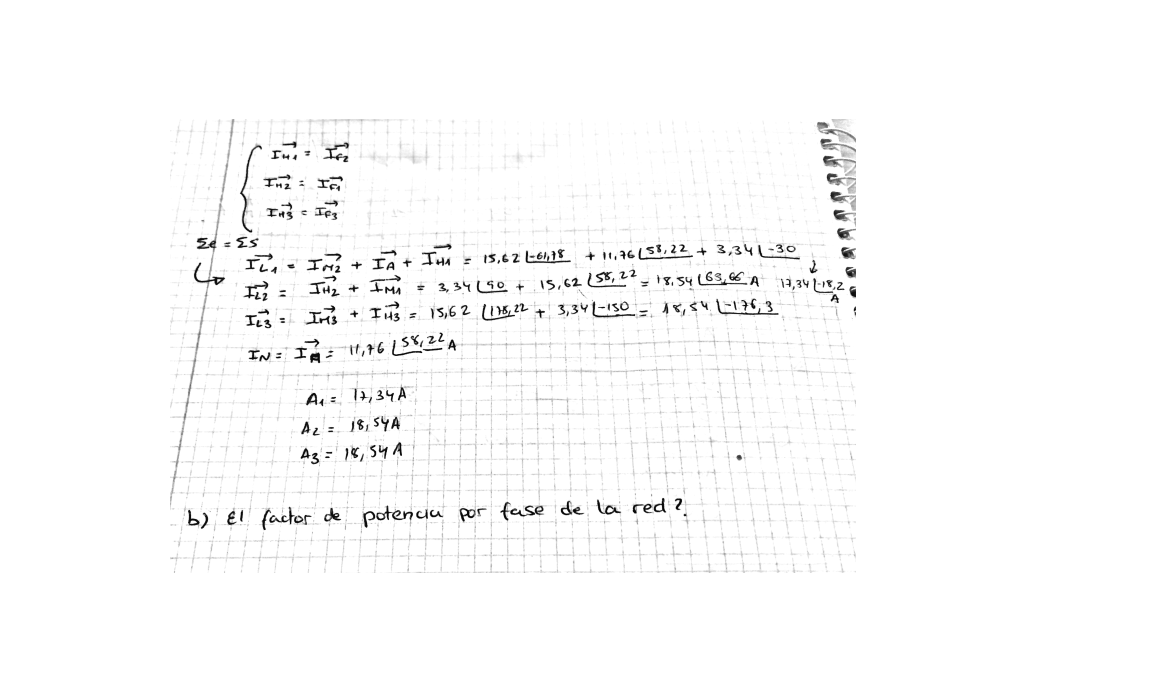 I⃗H1 = I⃗F2
I⃗H2 = I⃗F1
I⃗H3 = I⃗F3
Σe = Σs
I⃗L1 = I⃗M2 + I⃗A + I⃗H1 = 15,62∠-61,78 + 11,76∠58,22 + 3,34∠-30
I⃗L2 = I⃗H2 + I⃗M1 = 3,34∠90 + 15,62∠58,22 = 18,54∠63,66 A 17,34∠-18,2 A
I⃗L3 = I⃗M3 + I⃗H3 = 15,62∠178,22 + 3,34∠-150 = 18,54∠-176,3
IN = I⃗A = 11,76∠58,22 A
A1 = 17,34A
A2 = 18,54A
A3 = 18,54 A
b) El factor de potencia por fase de la red?